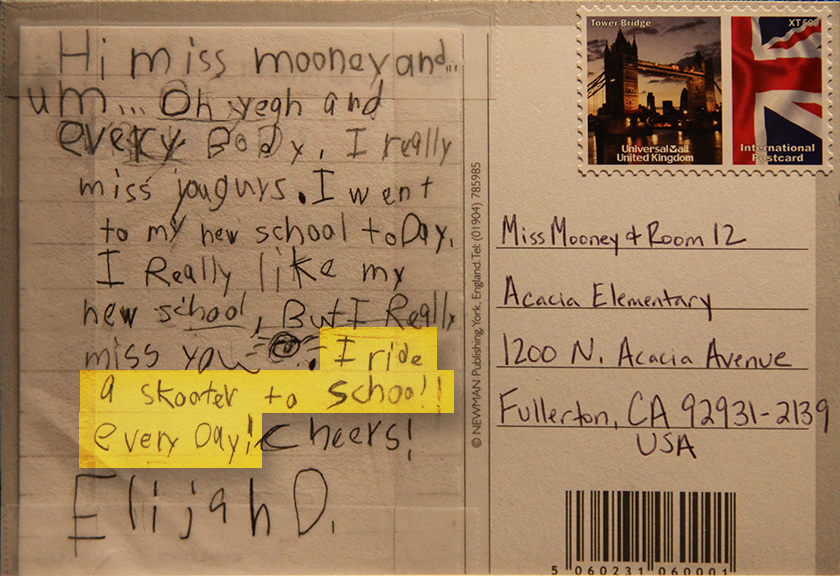 Hi miss mooney and...
um... Oh yeah and
every Body, I really
miss you guys. I went
to my new school toDay.
I Really like my
new school, But I Really
miss you.
I ride
a skooter to school!
every Day! Cheers!
Elijah D.
© NEWMAN Publishing, York, England. Tel: (01904) 785985
Tower Bridge
XT500
Universal Mail
United Kingdom
International
Postcard
Miss Mooney & Room 12
Acacia Elementary
1200 N. Acacia Avenue
Fullerton, CA 92931-2139
USA
5 060231 060001